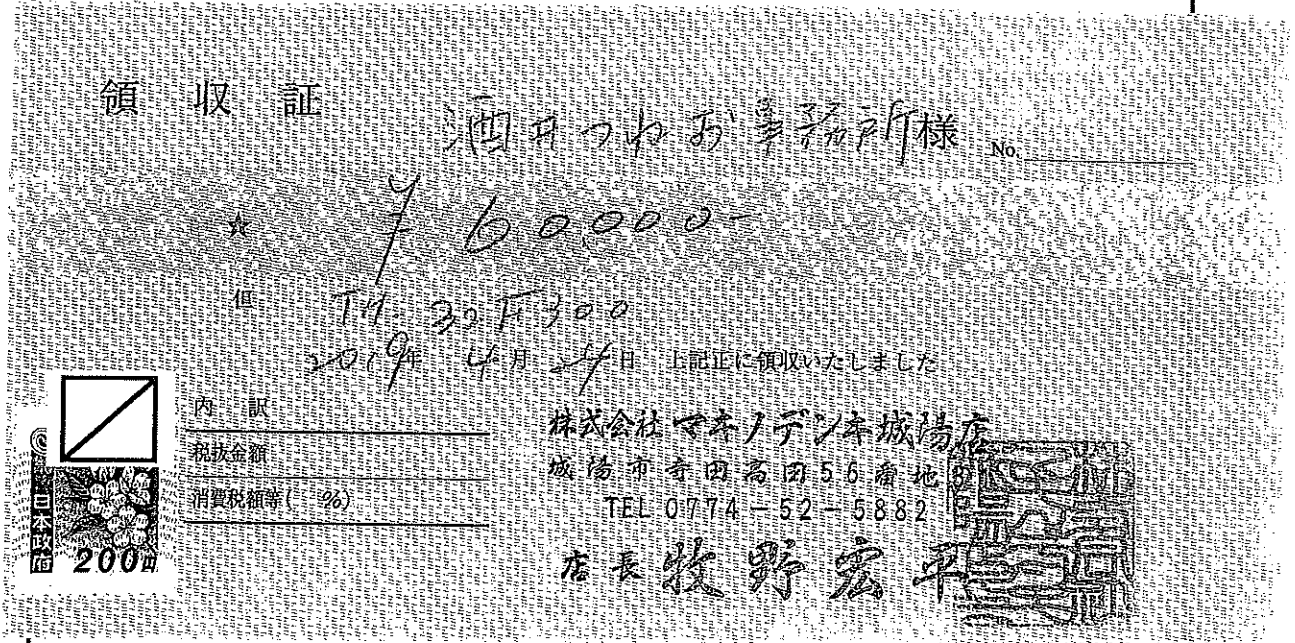 領 収 証
酒井つねお事務所様 No.
☆ ¥60,000-
但 TM. 32F300
2019年 4月 4日 上記正に領収いたしました
内 訳
税抜金額
消費税額等( %)
株式会社 マキノデンキ城陽店
城陽市寺田高田56番地8
TEL 0774-52-5882
店長 牧野宏平
日本政府
200円